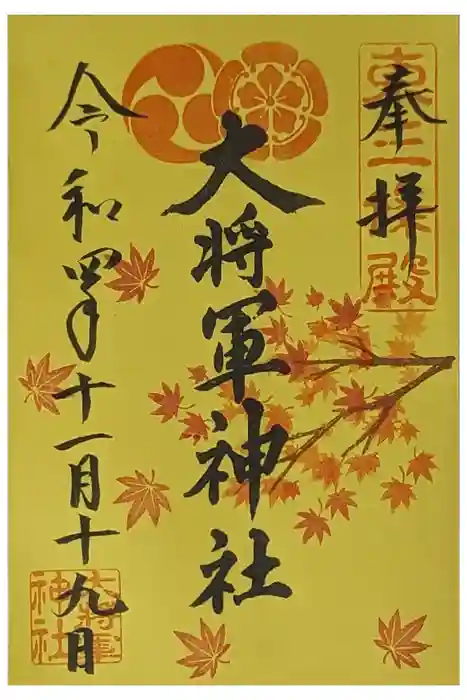 奉拝
京三條殿
大将軍神社
令和四年十一月十九日
大将軍
神社